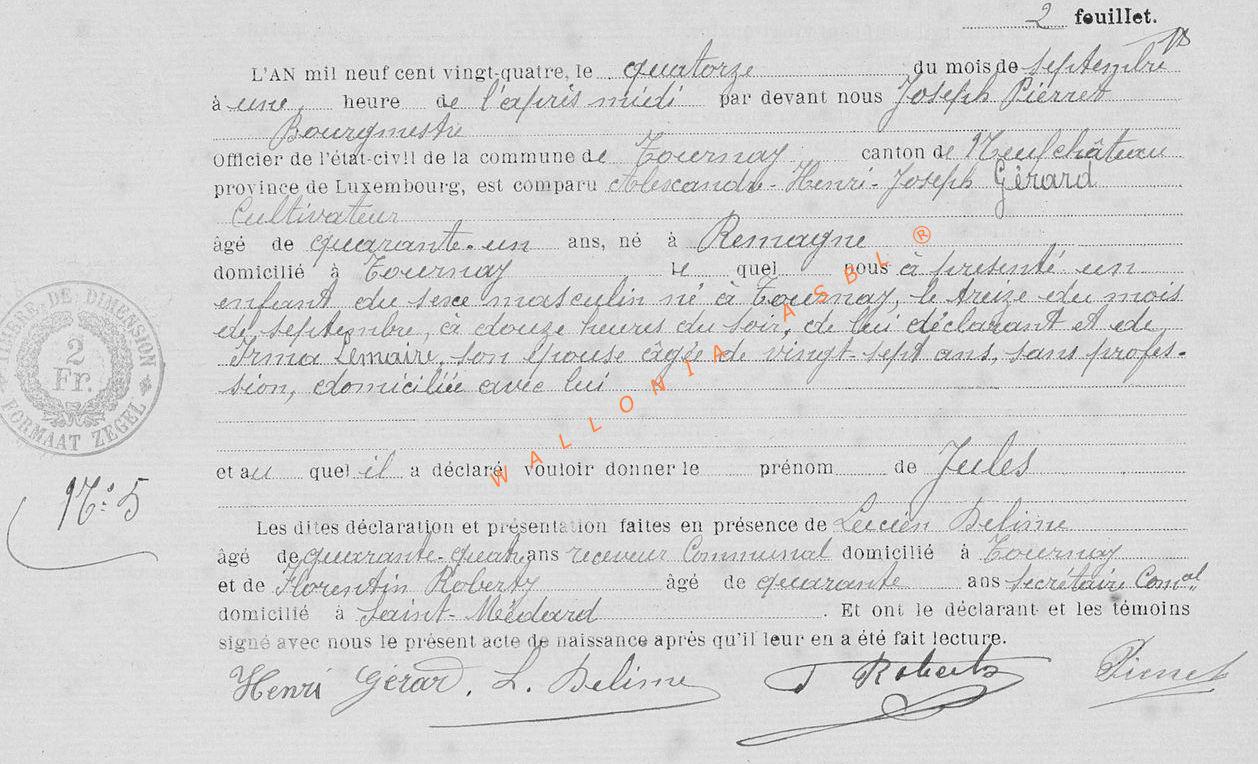 2 feuillet.
L'AN mil neuf cent vingt-quatre, le quatorze du mois de septembre
à une, heure de l'après midi par devant nous Joseph Pierret
Bourgmestre
Officier de l'état-civil de la commune de Tournay canton de Neufchâteau
province de Luxembourg, est comparu Alexandre-Henri-Joseph Gérard
Cultivateur
âgé de quarante-un ans, né à Remagne
domicilié à Tournay le quel nous à présenté un
enfant du sexe masculin né à Tournay, le treize du mois
de septembre, à douze heures du soir, de lui déclarant et de
Irma Lemaire, son épouse âgée de vingt-sept ans, sans profes-
sion, domiciliée avec lui
et au quel il a déclaré vouloir donner le prénom de Jules
Les dites déclaration et présentation faites en présence de Lucien Delime
âgé de quarante-quatre ans receveur Communal domicilié à Tournay
et de Florentin Roberty âgé de quarante ans secrétaire Comal
domicilié à Saint-Médard . Et ont le déclarant et les témoins
signé avec nous le présent acte de naissance après qu'il leur en a été fait lecture.
Henri Gérard. L. Delime Roberty Pierret
N° 5
TIMBRE DE DIMENSION
2
Fr.
FORMAAT ZEGEL
WALLONIA ASBL ®